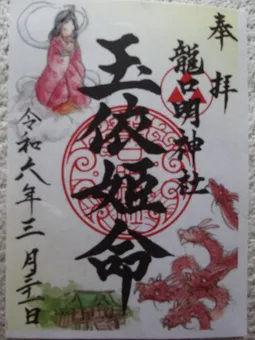 奉拝
龍口明神社
玉依姫命
令和六年三月二十一日